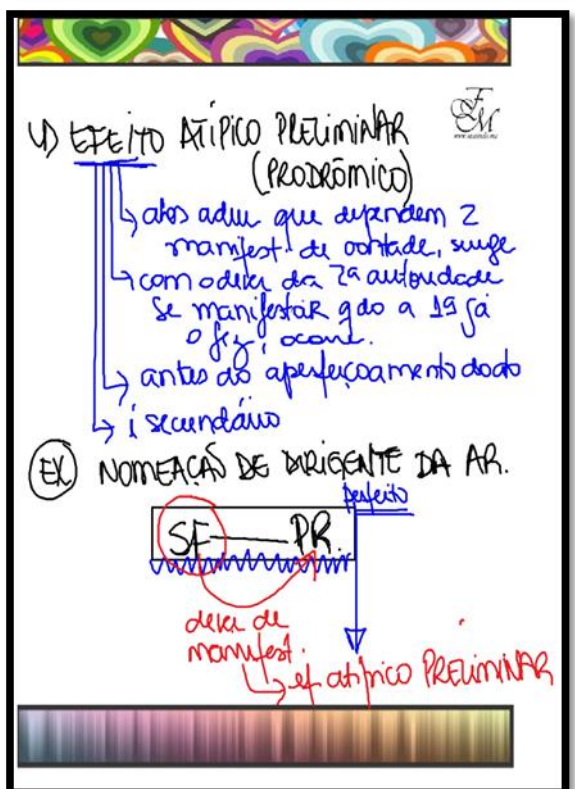 EFEITO ATÍPICO PRELIMINAR
(PRODRÔMICO)
FM
atos adm que dependem 2
manifest. de vontade, surge
com o dever da 2ª autoridade
se manifestar qdo a 1ª já
o fez, ocorre.
antes do aperfeiçoamento do ato
é secundário
EX NOMEAÇÃO DE DIRIGENTE DA AR.
perfeito
SF PR.
dever de
manifest.
ef atípico PRELIMINAR